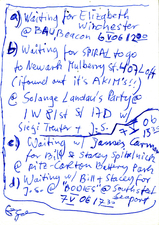 a) Waiting for Elizabeth
Winchester
@ BAU Beacon 6 V 06 1200
b) Waiting for SPIRAL to go
to Newark Mulberry St. 407 Loft
(ifound out it's AKIM'S!!)
@ Solange Landau's Party @
1 W 81st St 17D w/
Siegi Treuter + J.S.
c) Waiting w/ James Carman
for Bill & Stacey Spitalnick
@ Ritz-Carlton Battery Park
d) Waiting w/ Bill & Stacey for
J.S. @ "BODIES" @ South St.
Seaport
7 V 06 17